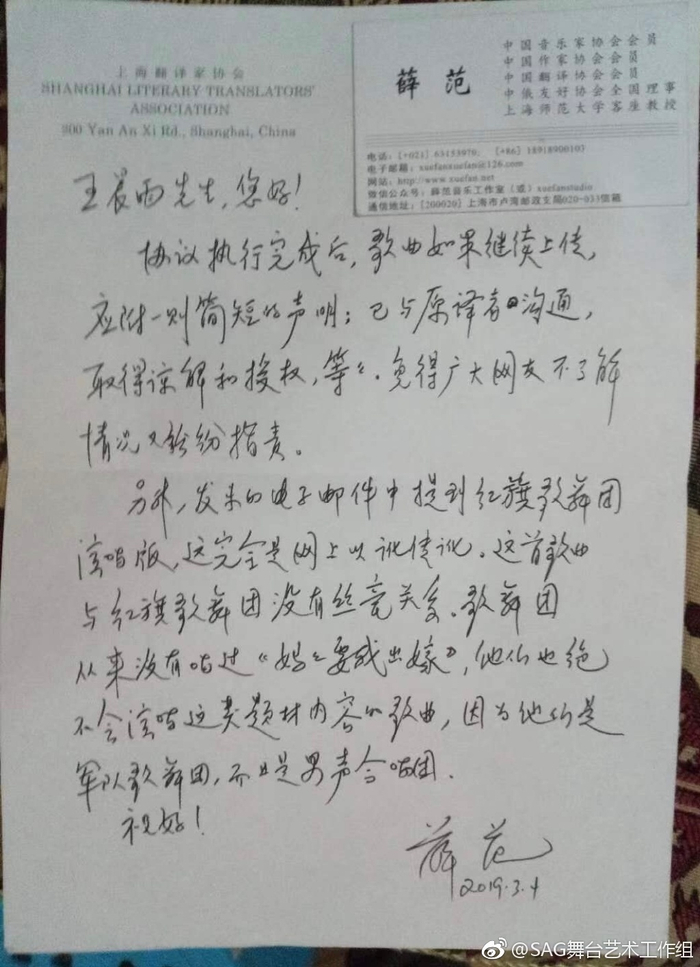 上海翻译家协会
SHANGHAI LITERARY TRANSLATORS'
ASSOCIATION
200 Yan An Xi Rd., Shanghai, China
薛 范
中国音乐家协会会员
中国作家协会会员
中国翻译协会会员
中俄友好协会全国理事
上海师范大学客座教授
电话：[+021] 63153970; [+86] 18918900103
电子邮箱：xuefanxuefan@126.com
网站：http://www.xuefan.net
微信公众号：薛范音乐工作室（或）xuefanstudio
通信地址：[200020] 上海市卢湾邮政支局020-033信箱
王晨雨先生，您好！
协议执行完成后，歌曲如果继续上传，
应附一则简短的声明：已与原译者沟通，
取得谅解和授权，等等．免得广大网友不了解
情况又纷纷指责。
另外，发来的电子邮件中提到红旗歌舞团
演唱版，这完全是网上以讹传讹．这首歌曲
与红旗歌舞团没有丝毫关系．歌舞团
从来没有唱过《妈妈要我出嫁》，他们也绝
不会演唱这类题材内容的歌曲，因为他们是
军队歌舞团，而且是男声合唱团．
祝好！
薛范
2019.3.4
@SAG舞台艺术工作组